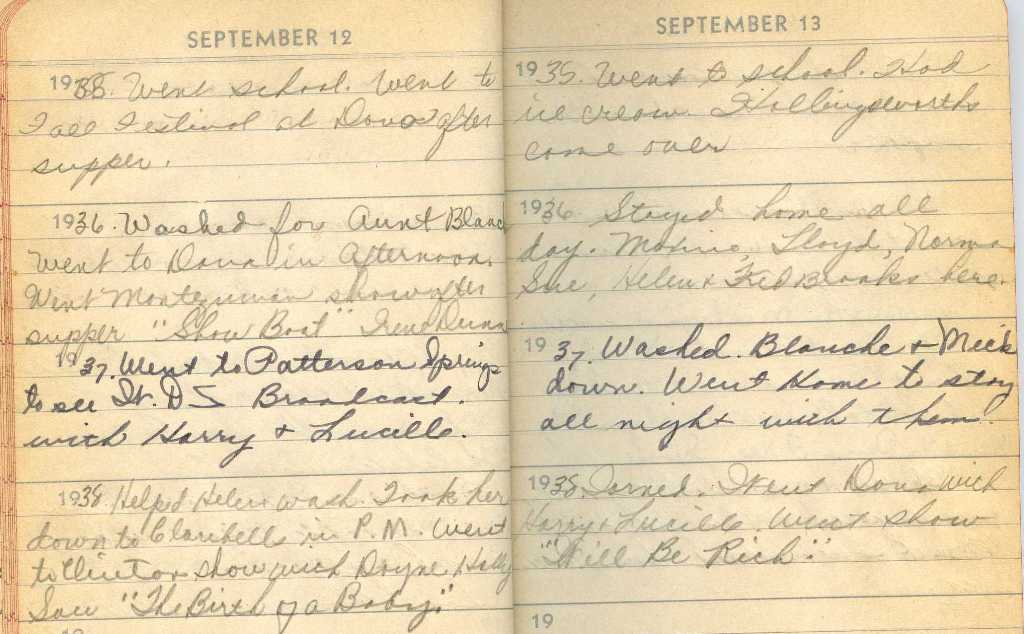 SEPTEMBER 12
1935. Went school. Went to
Fall Festival at Dana after
supper.
1936. Washed for Aunt Blanch
Went to Dana in afternoon.
Went Montezuma show after
supper "Show Boat" Irene Dunn
1937. Went to Patterson Springs
to see Broadcast.
with Harry & Lucille.
1938 Helped Helen wash. Took her
down to Claribells in P.M. Went
to Clinton show with
Saw "The Birth of a Baby."
SEPTEMBER 13
1935. Went to school. Had
ice cream. Hollingsworths
come over
1936 Stayed home all
day. Maxine, Lloyd, Norma
Sue, Helen & Fred Brooks here.
1937. Washed. Blanche & Mick
down. Went Home to stay
all night with them.
1938. Ironed. Went Dana with
Harry & Lucille. Went show
Will Be Rich"
19